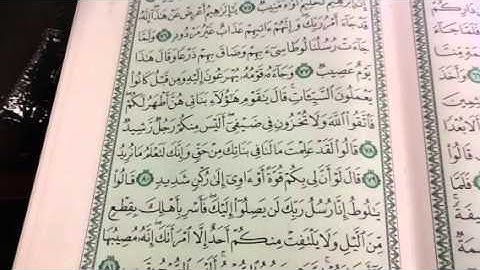 إِبْرَٰهِيمَ لَحَلِيمٌ أَوَّٰهٌ مُّنِيبٌ ۝٧٥ يَٰٓإِبْرَٰهِيمُ أَعْرِضْ عَنْ هَٰذَآ إِنَّهُۥ
قَدْ جَآءَ أَمْرُ رَبِّكَ وَإِنَّهُمْ ءَاتِيهِمْ عَذَابٌ غَيْرُ مَرْدُودٍ ۝٧٦ وَلَمَّا
جَآءَتْ رُسُلُنَا لُوطًا سِيٓءَ بِهِمْ وَضَاقَ بِهِمْ ذَرْعًا وَقَالَ هَٰذَا
يَوْمٌ عَصِيبٌ ۝٧٧ وَجَآءَهُۥ قَوْمُهُۥ يُهْرَعُونَ إِلَيْهِ وَمِن قَبْلُ كَانُوا۟
يَعْمَلُونَ ٱلسَّيِّـَٔاتِ ۚ قَالَ يَٰقَوْمِ هَٰٓؤُلَآءِ بَنَاتِى هُنَّ أَطْهَرُ لَكُمْ ۖ
فَٱتَّقُوا۟ ٱللَّهَ وَلَا تُخْزُونِ فِى ضَيْفِىٓ ۖ أَلَيْسَ مِنكُمْ رَجُلٌ رَّشِيدٌ
۝٧٨ قَالُوا۟ لَقَدْ عَلِمْتَ مَا لَنَا فِى بَنَاتِكَ مِنْ حَقٍّ وَإِنَّكَ لَتَعْلَمُ مَا نُرِيدُ
۝٧٩ قَالَ لَوْ أَنَّ لِى بِكُمْ قُوَّةً أَوْ ءَاوِىٓ إِلَىٰ رُكْنٍ شَدِيدٍ ۝٨٠ قَالُوا۟
يَٰلُوطُ إِنَّا رُسُلُ رَبِّكَ لَن يَصِلُوٓا۟ إِلَيْكَ ۖ فَأَسْرِ بِأَهْلِكَ بِقِطْعٍ
مِّنَ ٱلَّيْلِ وَلَا يَلْتَفِتْ مِنكُمْ أَحَدٌ إِلَّا ٱمْرَأَتَكَ ۖ إِنَّهُۥ مُصِيبُهَا